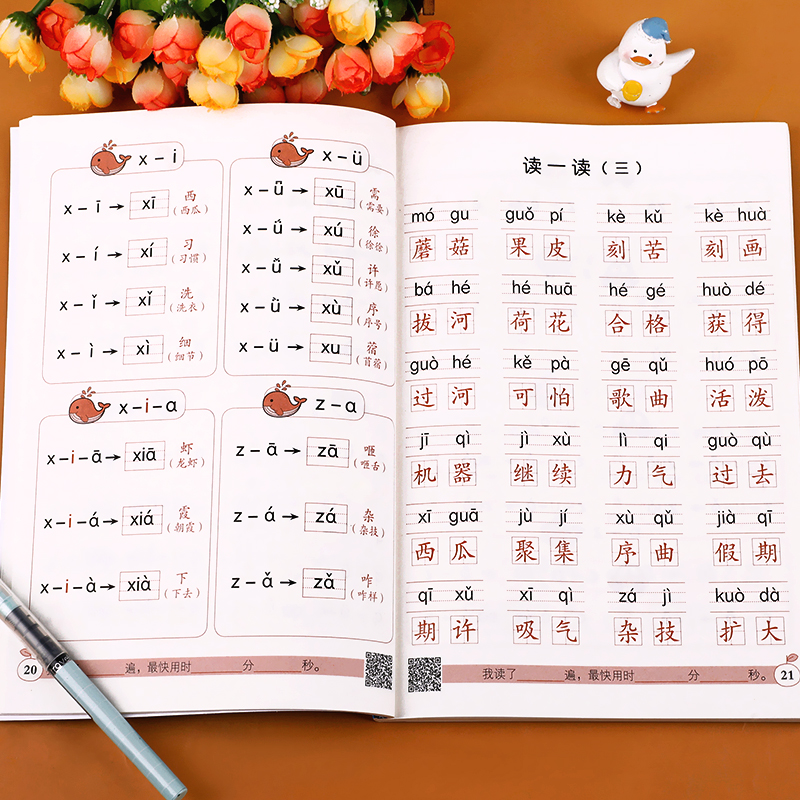 x – i
x – ī → xī 西（西瓜）
x – í → xí 习（习惯）
x – ǐ → xǐ 洗（洗衣）
x – ì → xì 细（细节）
x – ü
x – ǖ → xū 需（需要）
x – ǘ → xú 徐（徐徐）
x – ǚ → xǔ 许（许愿）
x – ǜ → xù 序（序号）
x – ü → xu 蓿（苜蓿）
x – i – ɑ
x – i – ā → xiā 虾（龙虾）
x – i – á → xiá 霞（朝霞）
x – i – à → xià 下（下去）
z – ɑ
z – ā → zā 咂（咂舌）
z – á → zá 杂（杂技）
z – ǎ → zǎ 咋（咋样）
20 遍，最快用时 分 秒。
读一读（三）
mó gu guǒ pí kè kǔ kè huà
蘑菇 果皮 刻苦 刻画
bá hé hé huā hé gé huò dé
拔河 荷花 合格 获得
guò hé kě pà gē qǔ huó pō
过河 可怕 歌曲 活泼
jī qì jì xù lì qi guò qù
机器 继续 力气 过去
xī guā jù jí xù qǔ jià qī
西瓜 聚集 序曲 假期
qī xǔ xī qì zá jì kuò dà
期许 吸气 杂技 扩大
我读了 遍，最快用时 分 秒。 21